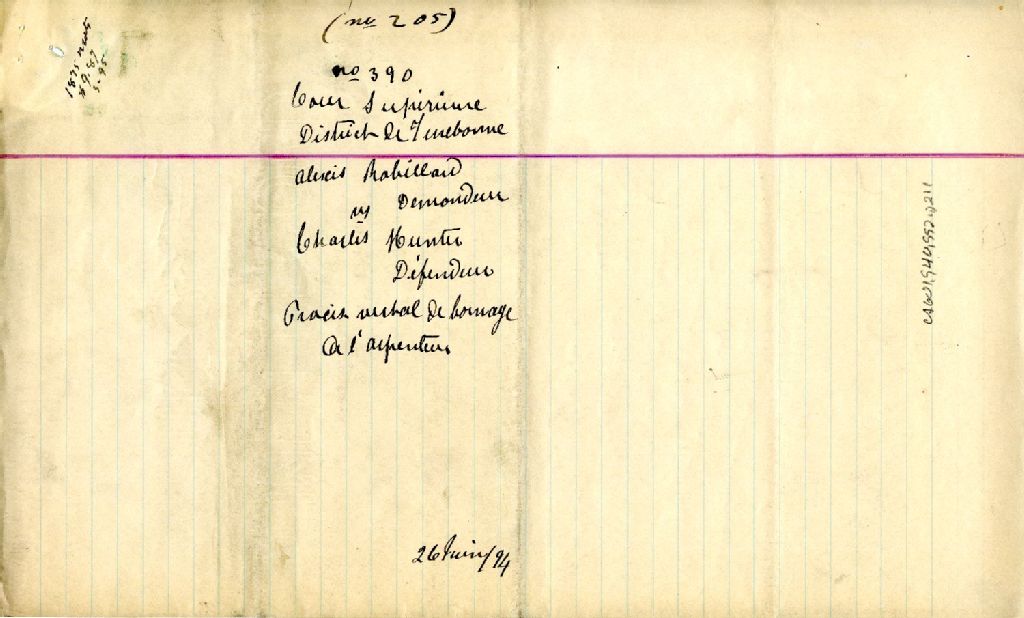 (no 205)
no 390
Cour Supérieure
District de Terrebonne
Alexis Robillard
vs Demandeur
Charles Hunter
Défendeur
Procès verbal de bornage
de l'arpenteur
26 Juin/94